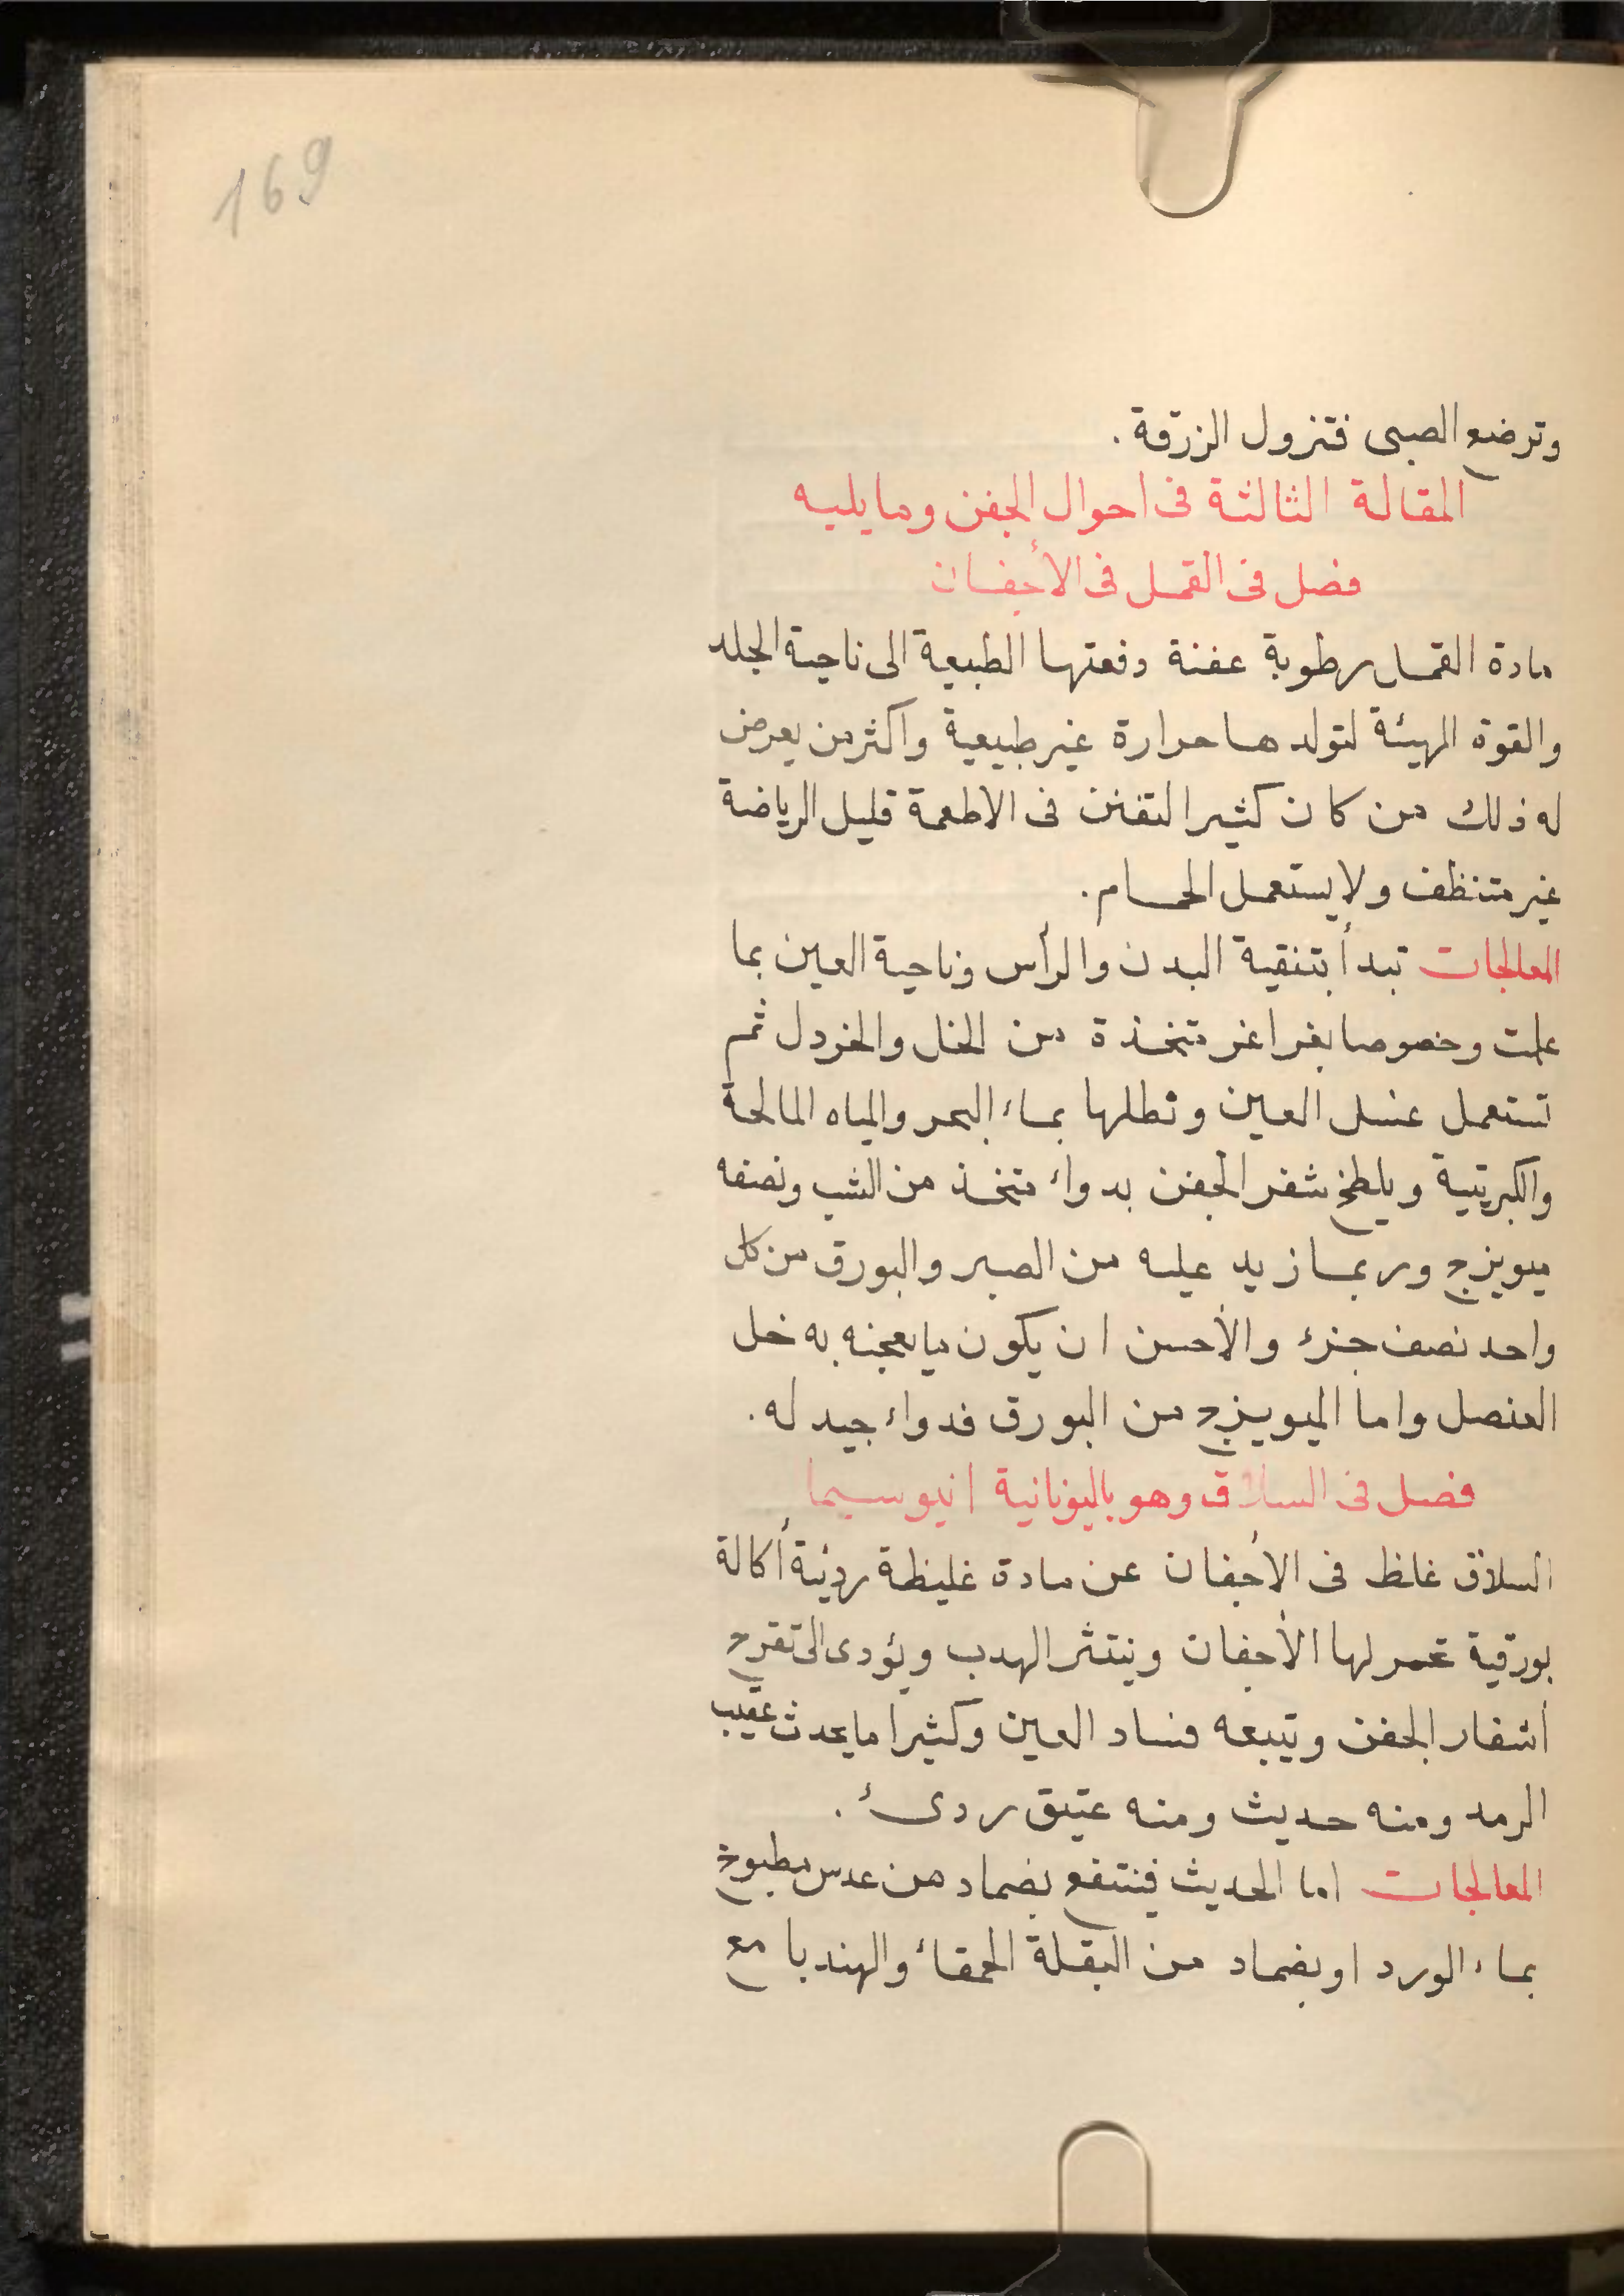 169
وترضع الصبى فتزول الزرقة .
المقالة الثالثة فى احوال الجفن وما يليه
فصل فى القمل فى الأجفان
مادة القمل رطوبة عفنة دفعتها الطبيعة الى ناحية الجلد
والقوة المهيئة لتولدها حرارة غير طبيعية واكثر من يعرض
له ذلك من كان كثير التفنن فى الاطعمة قليل الرياضة
غير متنظف ولا يستعمل الحمام.
المعالجات تبدأ بتنقية البدن والرأس وناحية العين بما
علمت وخصوصا بغراغر متخذة من الخل والخردل ثم
تستعمل غسل العين ونطلها بماء البحر والمياه المالحة
والكبريتية ويلطخ شفر الجفن بدواء متخذ من الشب ونصفه
ميويزج وربما زيد عليه من الصبر والبورق من كل
واحد نصف جزء والأحسن ان يكون ما يعجنه به خل
العنصل واما الميويزج من البورق فدواء جيد له.
فصل فى السلاق وهو باليونانية انيوسيما
السلاق غلظ فى الأجفان عن مادة غليظة رديئة أكالة
بورقية تحمر لها الأجفان وينتثر الهدب ويؤدى الى تقرح
أشفار الجفن ويتبعه فساد العين وكثيرا ما يحدث عقيب
الرمد ومنه حديث ومنه عتيق ردىء .
المعالجات اما الحديث فينتفع بضماد من عدس مطبوخ
بماء الورد او بضماد من البقلة الحمقاء والهندبا مع